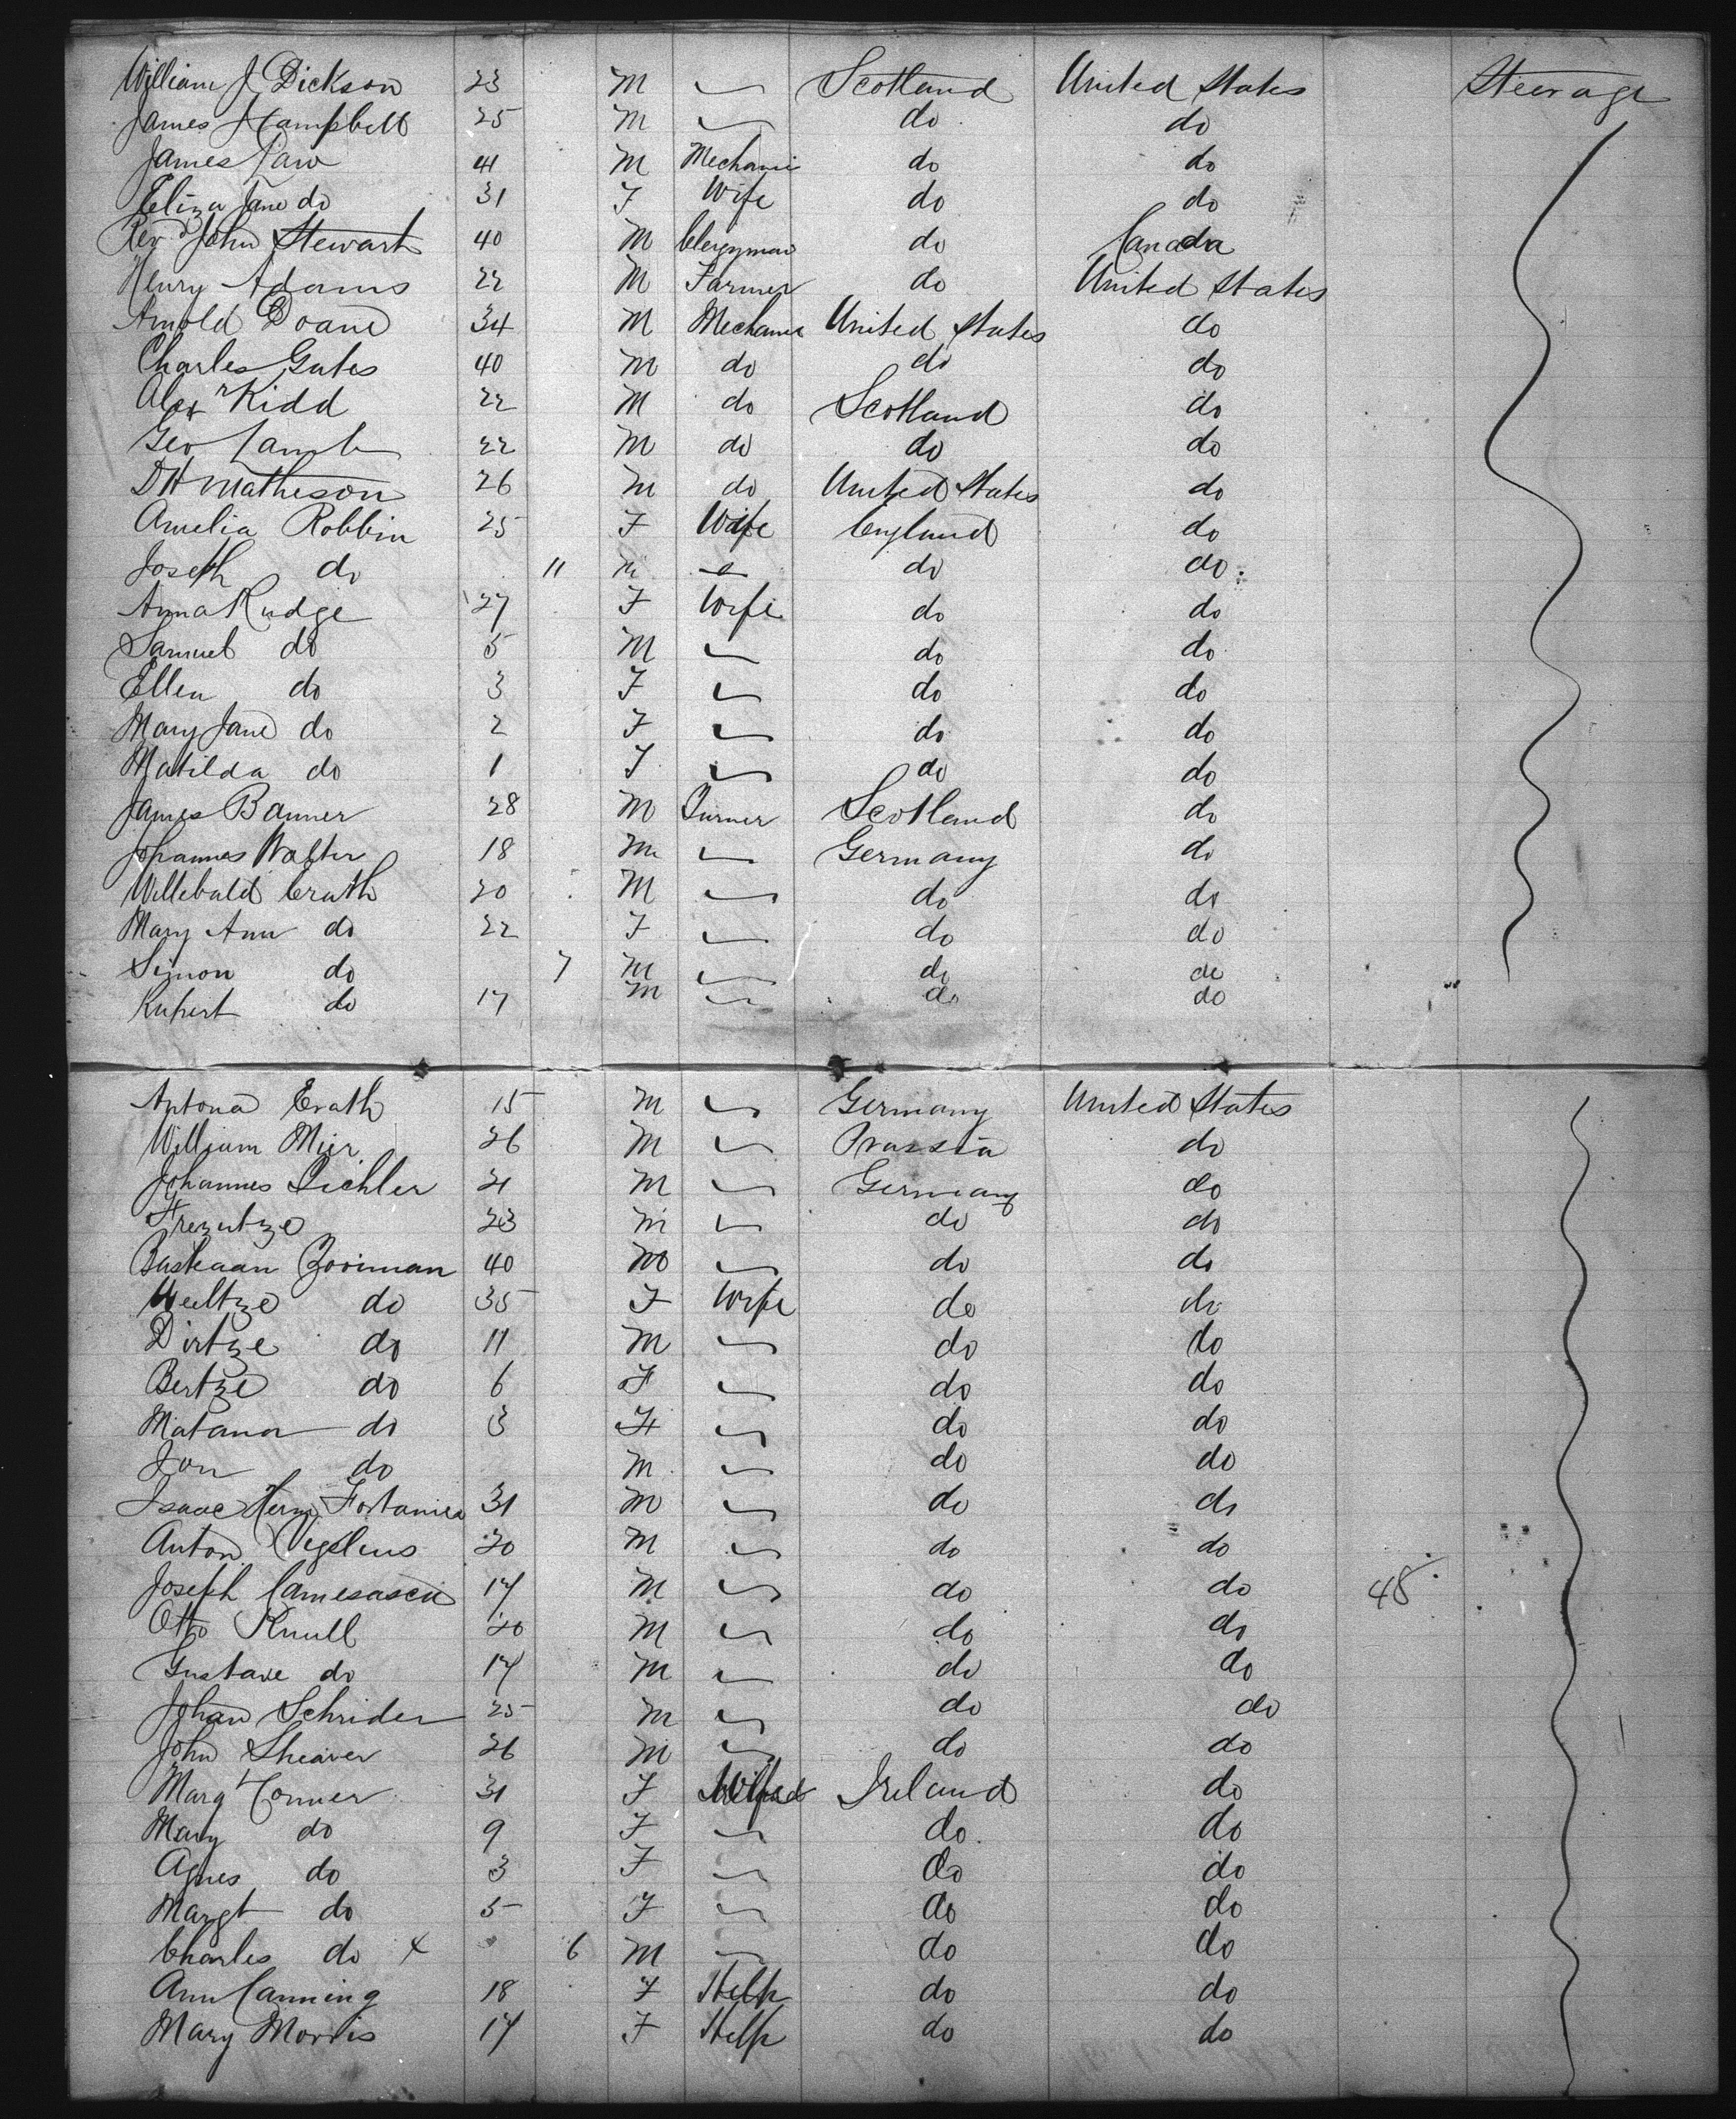 William J Dickson 23 M Scotland United States Steerage
James Campbell 25 M do do
James Law 41 M Mechanic do do
Eliza Jane do 31 F Wife do do
Revd John Stewart 40 M Clergyman do Canada
Henry Adams 22 M Farmer do United States
Arnold Doane 34 M Mechanic United States do
Charles Gates 40 M do do do
Alexr Kidd 22 M do Scotland do
Geo Lamb 22 M do do do
D H Matheson 26 M do United States do
Amelia Robbin 25 F Wife England do
Joseph do 11 M do do
Anna Rudge 27 F Wife do do
Samuel do 5 M do do
Ellen do 3 F do do
Mary Jane do 2 F do do
Matilda do 1 F do do
James Banner 28 M Turner Scotland do
Johannes Walter 18 M Germany do
Willebald Erath 20 M do do
Mary Ann do 22 F do do
Simon do 7 M do do
Rupert do 17 M do do
Antona Erath 15 M Germany United States
William Mier 26 M Prussia do
Johannes Pichler 21 M Germany do
23 M do do
40 M do do
do 35 F Wife do do
Dirtze do 11 M do do
Bertze do 6 F do do
Matana do 3 F do do
Jon do M do do
Isaac Herm 31 M do do
Anton 20 M do do
Joseph 17 M do do 48
Otto Knull 20 M do do
Gustave do 17 M do do
Johan Schrider 25 M do do
John Shearer 26 M do do
Marg Conner 31 F Ireland do
Mary do 9 F do do
Agnes do 3 F do do
Margt do 5 F do do
Charles do x 6 M do do
Ann Canning 18 F Help do do
Mary Morris 17 F Help do do